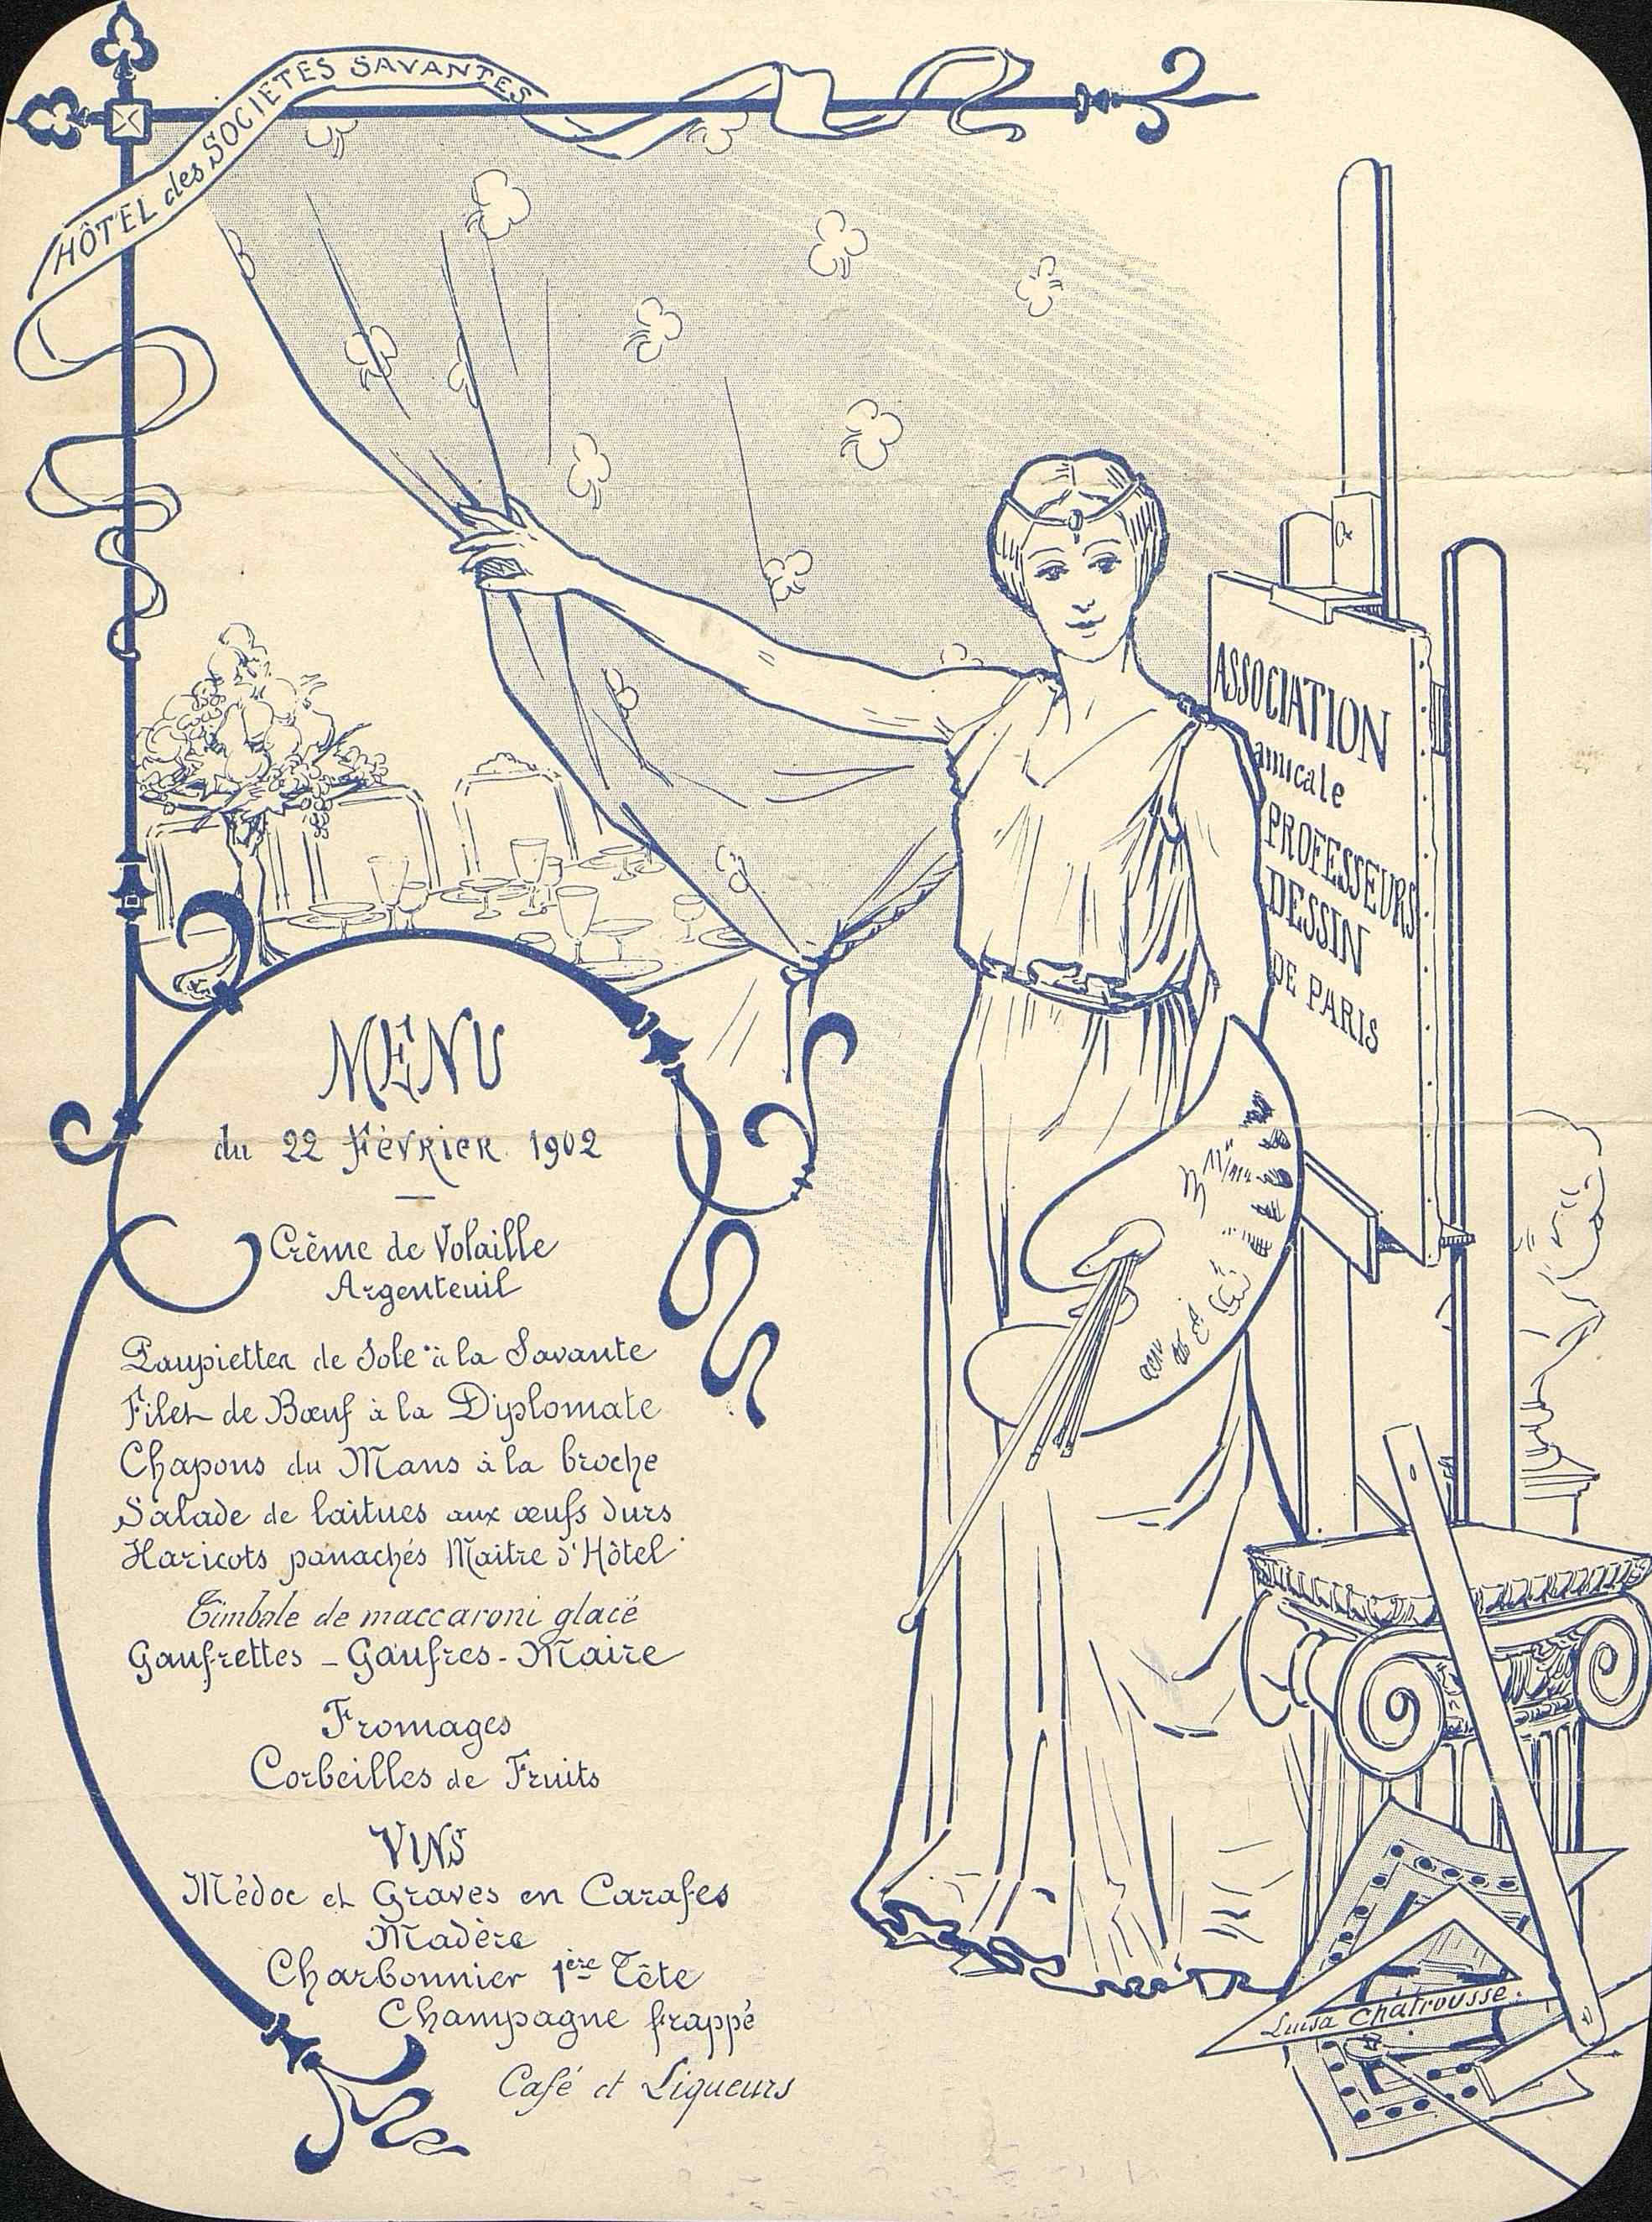 HÔTEL des SOCIETES SAVANTES
ASSOCIATION
amicale
PROFESSEURS
DESSIN
DE PARIS
MENU
du 22 Février 1902
Crême de Volaille
Argenteuil
Paupiettes de Sole à la Savante
Filet de Bœuf à la Diplomate
Chapons du Mans à la broche
Salade de laitues aux œufs durs
Haricots panachés Maitre d'Hôtel
Timbale de maccaroni glacé
Gaufrettes - Gaufres - Maire
Fromages
Corbeilles de Fruits
VINS
Médoc et Graves en Carafes
Madère
Charbonnier 1ère Tête
Champagne frappé
Café et Liqueurs
Luisa Chatrousse.